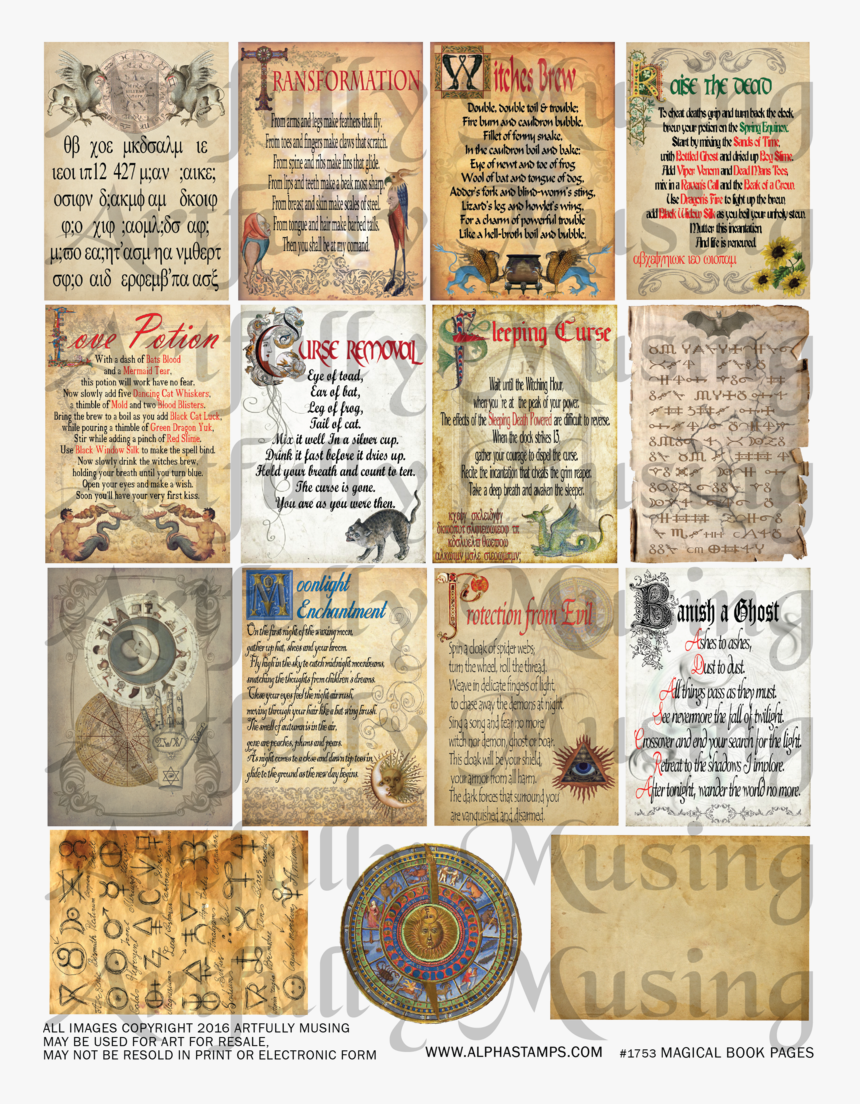 TRANSFORMATION
From arms and legs make feathers that fly.
From toes and fingers make claws that scratch.
From spine and ribs make fins that glide.
From lips and teeth make a beak most sharp.
From breast and skin make scales of steel.
From tongue and hair make barbed tails.
Then you shall be at my comand.
Witches Brew
Double, double toil & trouble;
Fire burn and cauldron bubble.
Fillet of fenny snake,
In the cauldron boil and bake;
Eye of newt and toe of frog
Wool of bat and tongue of dog,
Adder's fork and blind-worm's sting,
Lizard's leg and howlet's wing,
For a charm of powerful trouble
Like a hell-broth boil and bubble.
Raise THE DEAD
To cheat deaths grip and turn back the clock,
brew your potion on the Spring Equinex.
Start by mixing the Sands of Time,
with Bottled Ghost and dried up Bog Slime.
Add Viper Venom and Dead Mans Toes,
mix in a Raven's Call and the Beak of a Crow.
Use Dragon's Fire to light up the brew,
add Black Widow Silk as you boil your unholy stew.
Mutter this incantation
And life is renewed.
Love Potion
With a dash of Bats Blood
and a Mermaid Tear,
this potion will work have no fear.
Now slowly add five Dancing Cat Whiskers,
a thimble of Mold and two Blood Blisters.
Bring the brew to a boil as you add Black Cat Luck,
while pouring a thimble of Green Dragon Yuk,
Stir while adding a pinch of Red Slime.
Use Black Window Silk to make the spell bind.
Now slowly drink the witches brew,
holding your breath until you turn blue.
Open your eyes and make a wish.
Soon you'll have your very first kiss.
CURSE REMOVAL
Eye of toad,
Ear of bat,
Leg of frog,
Tail of cat.
Mix it well In a silver cup.
Drink it fast before it dries up.
Hold your breath and count to ten.
The curse is gone.
You are as you were then.
Sleeping Curse
Wait until the Witching Hour,
when you're at the peak of your power.
The effects of the Sleeping Death Powered are difficult to reverse.
When the clock strikes 13,
gather your courage to dispel the curse.
Recite the incantation that cheats the grim reaper.
Take a deep breath and awaken the sleeper.
Moonlight
Enchantment
On the first night of the waxing moon,
gather up hat, shoes and your broom.
Fly high in the sky to catch midnight moonbeams,
snatching the thoughts from children's dreams.
Close your eyes feel the night air rush,
moving through your hair like a bat wing brush.
The smell of autumn is in the air,
gone are peaches, plums and pears.
As night comes to a close and dawn tip toes in,
glide to the ground as the new day begins.
Protection from Evil
Spin a cloak of spider webs;
turn the wheel, roll the thread.
Weave in delicate fingers of light,
to chase away the demons at night.
Sing a song and fear no more,
witch nor demon, ghost or boar.
This cloak will be your shield,
your armor from all harm.
The dark forces that surround you
are vanquished and disarmed.
Banish a Ghost
Ashes to ashes,
Dust to dust.
All things pass as they must.
See nevermore the fall of twilight.
Crossover and end your search for the light.
Retreat to the shadows I implore.
After tonight, wander the world no more.
ALL IMAGES COPYRIGHT 2016 ARTFULLY MUSING
MAY BE USED FOR ART FOR RESALE,
MAY NOT BE RESOLD IN PRINT OR ELECTRONIC FORM
WWW.ALPHASTAMPS.COM
#1753 MAGICAL BOOK PAGES